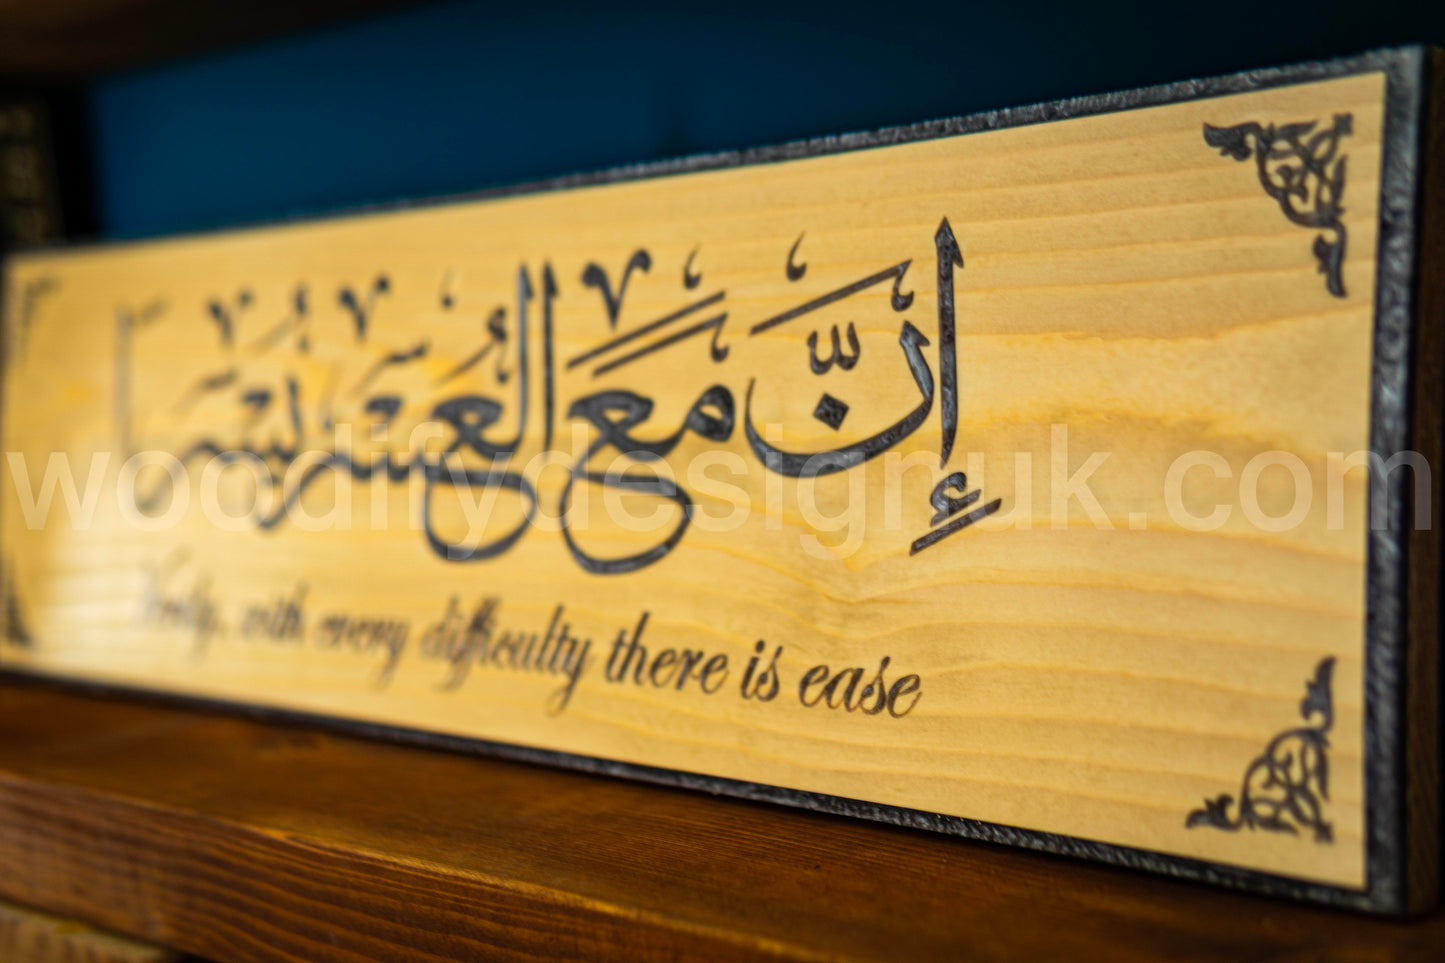 إِنَّ مَعَ الْعُسْرِ يُسْرًا
woodifydesignuk.com
Verily, with every difficulty there is ease